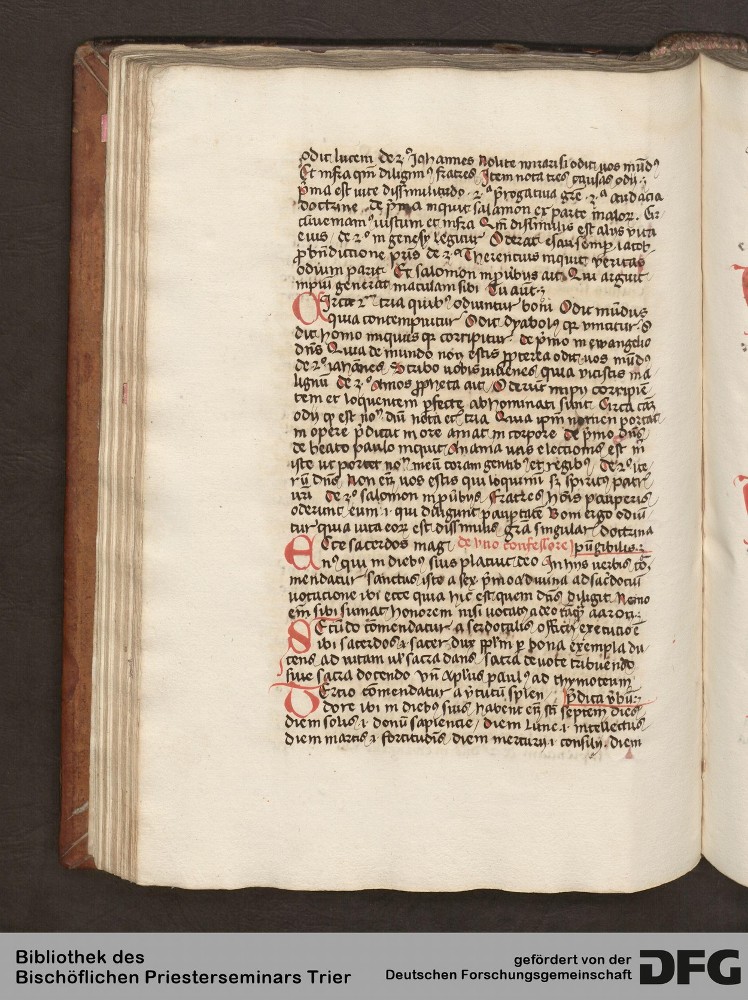 odit lucem de 2º Johannes Nolite mirari si odit vos mūdꝰ
Et infra qm̄ diligimꝰ fratres Item nota tres causas odij
p̄ma est vite dissimilitudo 2ª p̄rogatiua gr̄e 3ª audacia
doctrine de p̄ma inquit salamon ex parte malor. Cir
cūueniamꝰ iustum et infra Qm̄ dissimilis est alijs vita
eius de 2º in genesy legitur Oderat esau semp iacob
p bn̄dictione pr̄is de 3º Therencius inquit veritas
odium parit Et salomon in p̄ubijs ait Qui arguit
impiū generat maculam sibi Tu aūt
Circa 2m tria quibꝰ odiuntur boni Odit mūdus
quia contempnitur Odit dyabolꝰ qꝛ vincitur O
dit homo iniquus qꝛ corripitur de p̄mo in ewangelio
dn̄s Quia de mundo non estis ppterea odit vos mūdꝰ
de 2º iohānes Scribo vobis iuuenes quia vicistis ma
lignū de 3º Amos ppheta ait Oderūt impij corripiē
tem et loquentem pfecte abhominati sunt Circa cām
odij qꝛ est noꝰ dn̄i nota et tria Quia ipm̄ nomen portat
in opere p̄dicat in ore amat in corpore de p̄mo dn̄s
de beato paulo inquit Anania vas electionis est m̄
iste vt portet noꝰ meū coram gentibꝰ et regibꝰ de 2º ite
rū dn̄s Non em̄ vos estis qui loquimī sꝫ spiritꝰ patrꝭ
vr̄i de 3º salomon in p̄ubijs Fratres hoīs pauperis
oderunt eum i qui diligunt paupertatē Boni ergo odiū
tur quia vita eoꝝ est dissimilis gr̄a singularꝭ doctrina
Ecce sacerdos magꝰ de vno confessore p̄ngibilis
nꝰ qui in diebꝰ suis placuit deo In hijs verbis cō
mendatur sanctus iste a sex p̄mo a diuina ad sacdociū
vocatione ibi ecce quia hic est quem dn̄s diligit Nemo
em̄ sibi sumat honorem nisi vocatꝰ a deo tāqꝫ aaron
Secūdo cōmendatur a sacerdotalis officij executiōe
ibi sacerdos i sacer dux ppl̄m p bona exempla du
cens ad vitam vl sacra dans sacra deuote tribuendo
siue sacra docendo vn̄ apl̄us paulꝰ ad thymoteum
Tercio cōmendatur a v̄tutū splen p̄dica v̄bū
dore ibi in diebꝰ suis habent em̄ sct̄i septem dies
diem solis i donū sapiencie diem lune i intellectus
diem martis i fortitudīs diem mercurij i consilij diem
Bibliothek des
Bischöflichen Priesterseminars Trier
gefördert von der
Deutschen Forschungsgemeinschaft
DFG